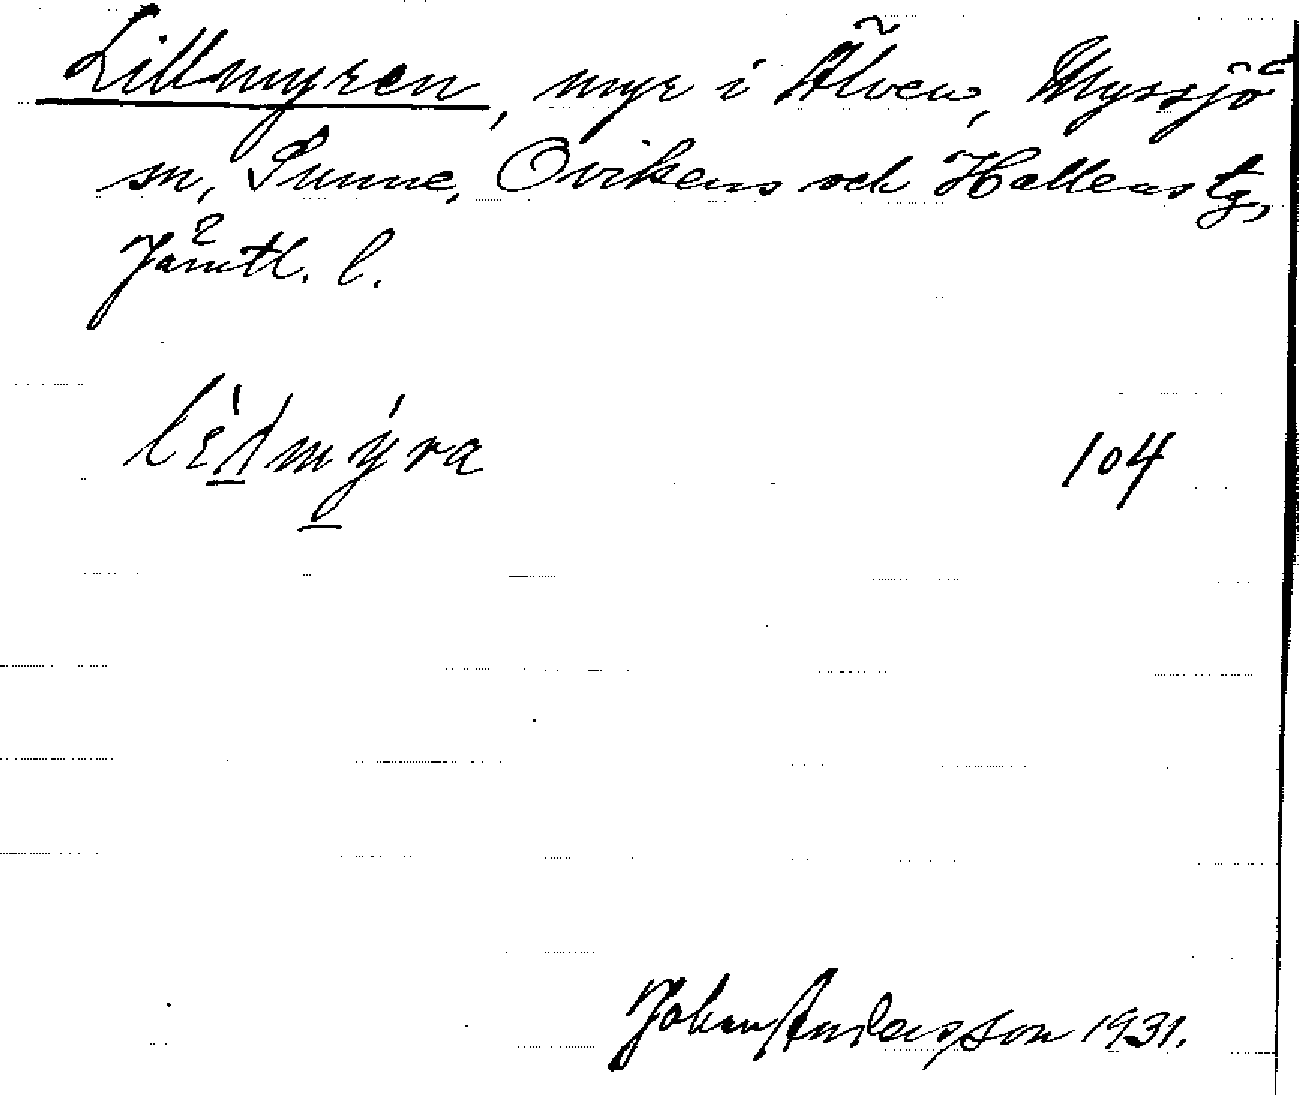 Lillmyren, myr i Älven, Myssjö
sn, Sunne, Ovikens och Hallens tg,
Jämtl. l.
104
Johan Andersson 1931.